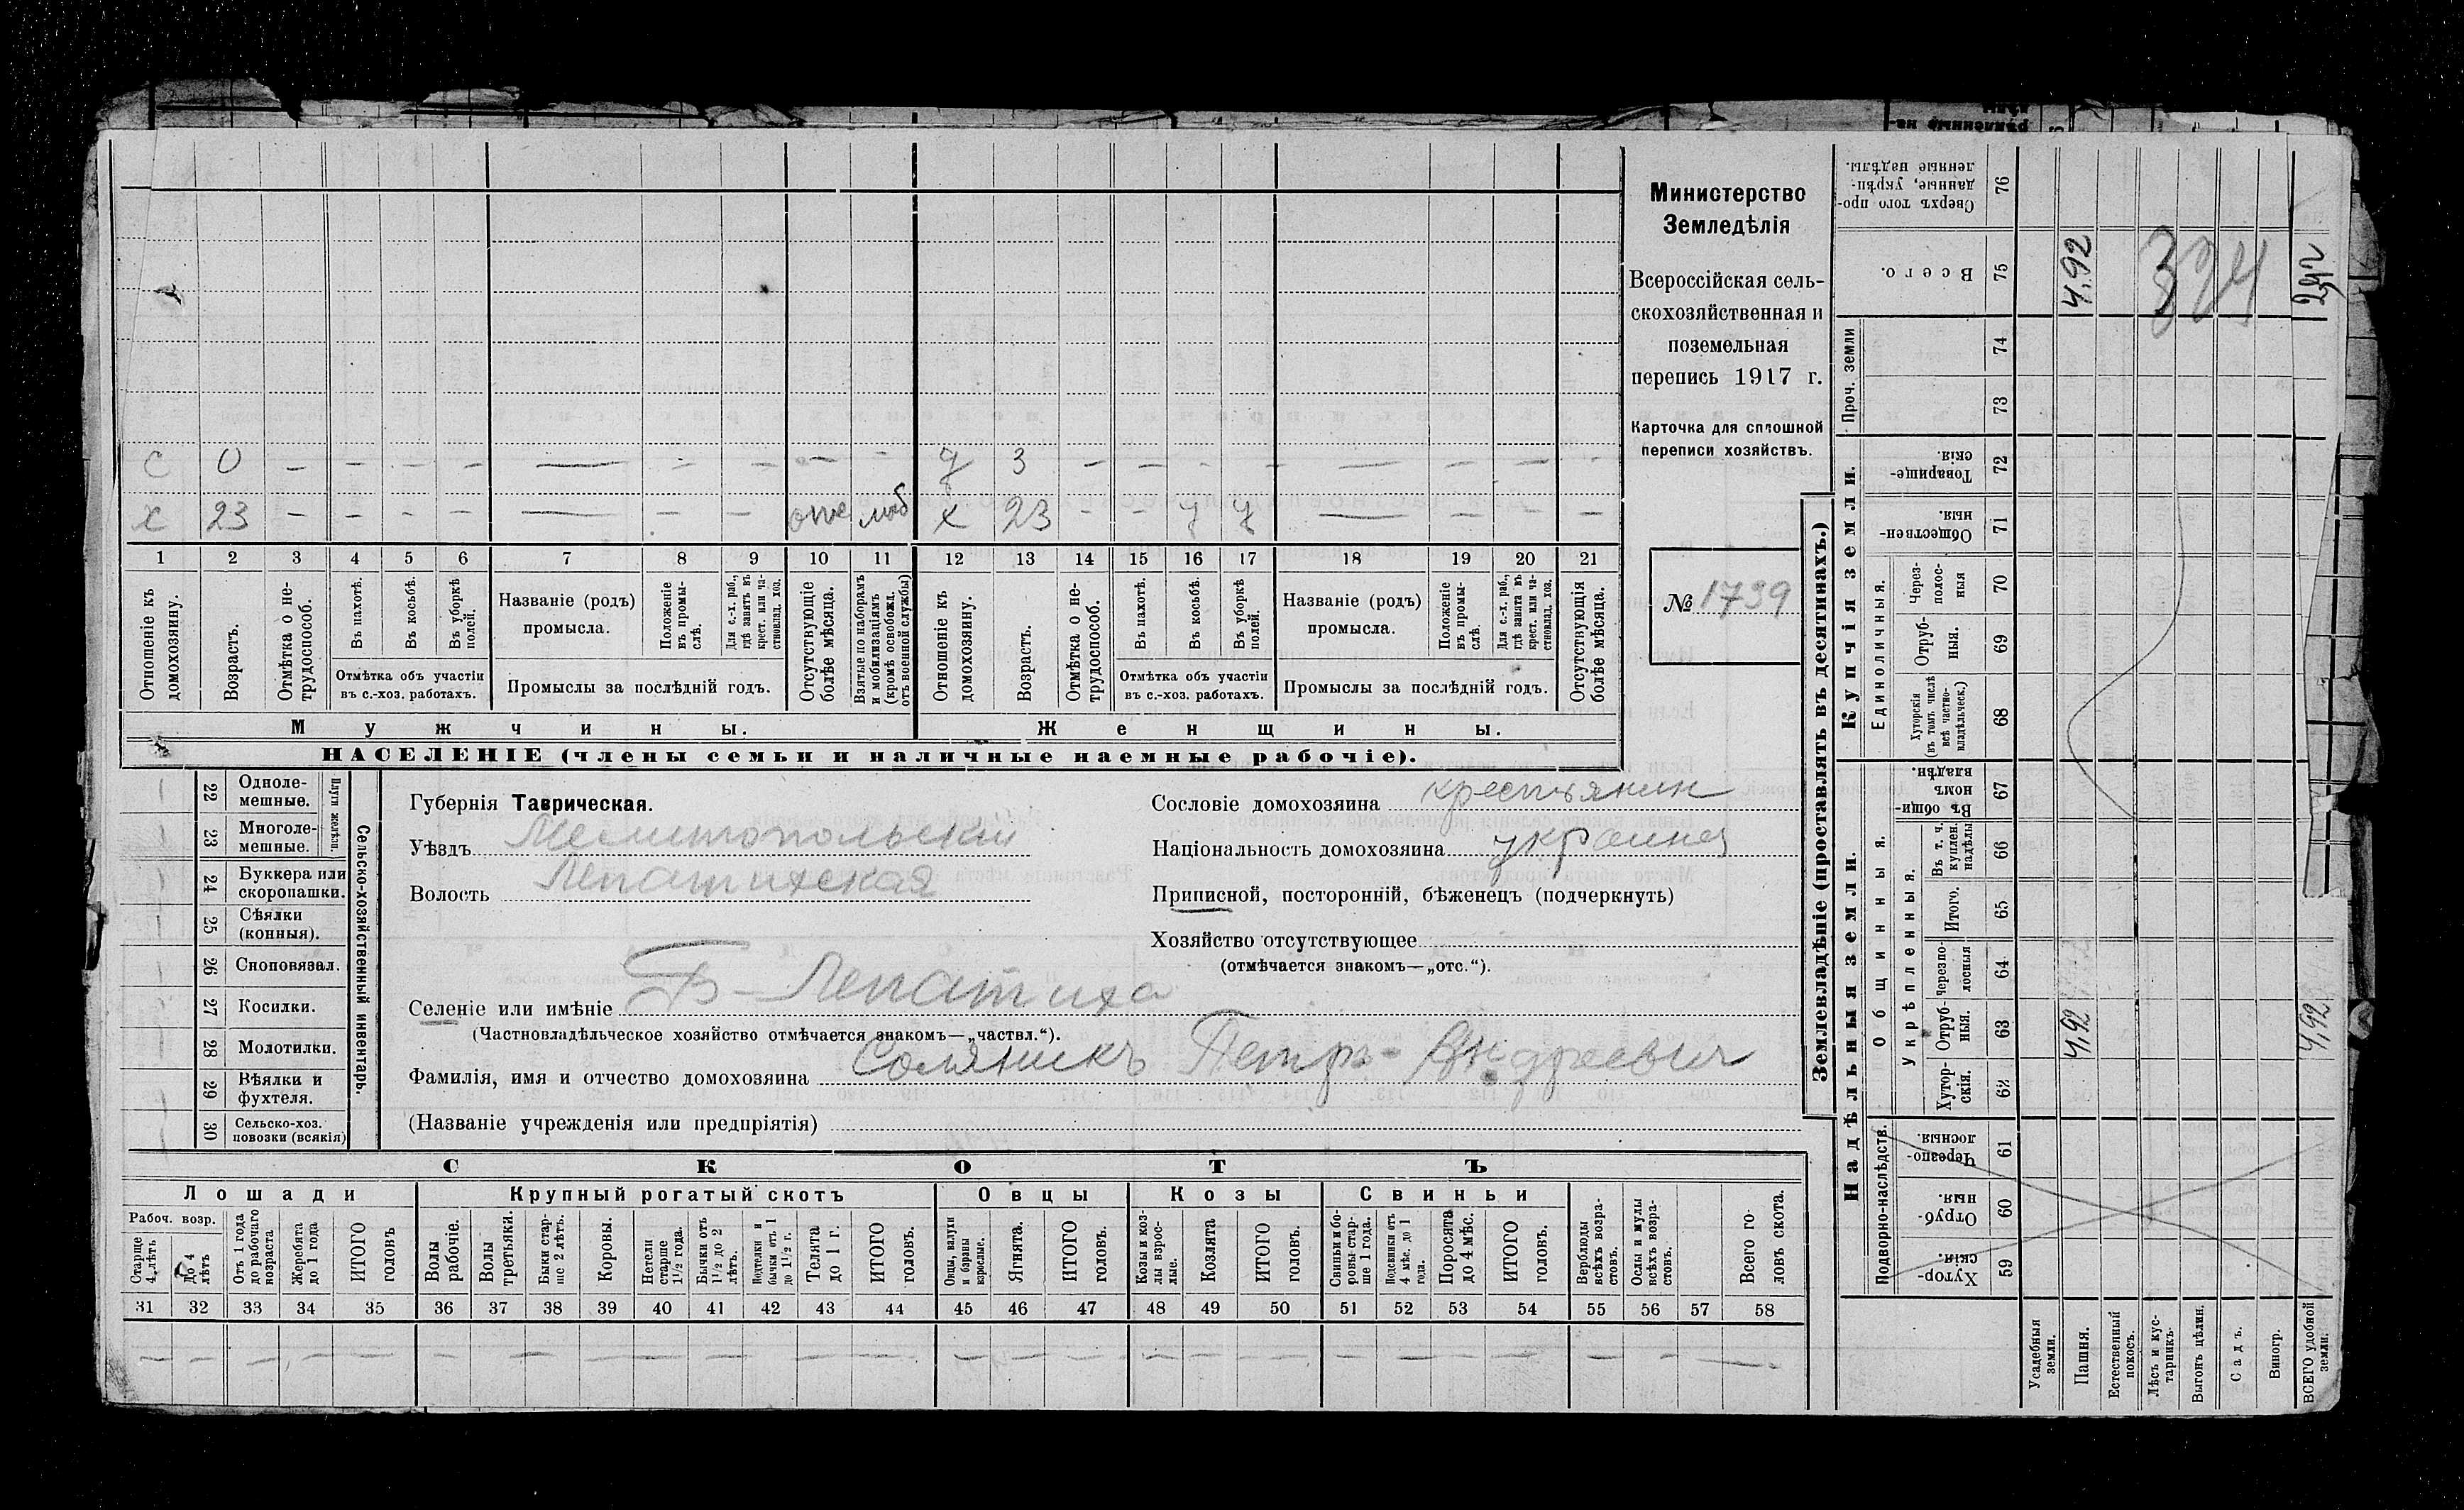 Министерство
Земледѣлія
Всероссійская сель-
скохозяйственная и
поземельная
перепись 1917 г.
Карточка для сплошной
переписи хозяйствъ.
№ 1739
С 0 — — — — — — — — — д 3 — — — — — — — —
х 23 — — — — — — — отс моб х 23 — — у у — — — —
1 2 3 4 5 6 7 8 9 10 11 12 13 14 15 16 17 18 19 20 21
Отношеніе къ домохозяину.
Возрастъ.
Отмѣтка о не-трудоспособ.
Въ пахотѣ.
Въ косьбѣ.
Въ уборкѣ полей.
Отмѣтка объ участіи
въ с.-хоз. работахъ.
Названіе (родъ)
промысла.
Положеніе въ промы-слѣ.
Для с.-х. раб., гдѣ занятъ въ крест. или ча-стновлад. хоз.
Промыслы за послѣдній годъ.
Отсутствующіе болѣе мѣсяца.
Взятые по наборамъ и мобилизаціямъ (кромѣ освобожд. отъ военной службы)
Отношеніе къ домохозяину.
Возрастъ.
Отмѣтка о не-трудоспособ.
Въ пахотѣ.
Въ косьбѣ.
Въ уборкѣ полей.
Отмѣтка объ участіи
въ с.-хоз. работахъ.
Названіе (родъ)
промысла.
Положеніе въ промы-слѣ.
Для с.-х. раб., гдѣ занята въ крест. или ча-стновлад. хоз.
Промыслы за послѣдній годъ.
Отсутствующія болѣе мѣсяца.
Мужчины. Женщины.
НАСЕЛЕНІЕ (члены семьи и наличные наемные рабочіе).
Сельско-хозяйственный инвентарь.
Плуги желѣзн.
22 Одноле-мешные.
23 Многоле-мешные.
24 Буккера или скоропашки.
25 Сѣялки (конныя).
26 Сноповязал.
27 Косилки.
28 Молотилки.
29 Вѣялки и фухтеля.
30 Сельско-хоз. повозки (всякія)
Губернія Таврическая.
Уѣздъ Мелитопольскій
Волость Лепатихская
Сословіе домохозяина крестьянин
Національность домохозяина украинец
Приписной, посторонній, бѣженецъ (подчеркнуть)
Хозяйство отсутствующее
(отмѣчается знакомъ—„отс.“).
Селеніе или имѣніе Б-Лепатиха
(Частновладѣльческое хозяйство отмѣчается знакомъ—„частвл.“).
Фамилія, имя и отчество домохозяина Соляникъ Петръ Андреевич
(Названіе учрежденія или предпріятія)
СКОТЪ
Лошади Крупный рогатый скотъ Овцы Козы Свиньи
Рабоч. возр.
Старше 4 лѣтъ
До 4 лѣтъ
Отъ 1 года до рабочаго возраста
Жеребята до 1 года
ИТОГО головъ
Волы рабочіе.
Волы третьяки.
Быки стар-ше 2 лѣтъ.
Коровы.
Нетели старше 1½ года.
Бычки отъ 1½ до 2 лѣтъ.
Подтелки и бычки отъ 1 до 1½ г.
Телята до 1 г.
ИТОГО головъ.
Овцы, валухи и бараны взрослые.
Ягнята.
ИТОГО головъ.
Козы и коз-лы взрос-лые.
Козлята
ИТОГО головъ.
Свиньи и бо-ровы стар-ше 1 года.
Подсвинки отъ 4 мѣс. до 1 года.
Поросята до 4 мѣс.
ИТОГО головъ.
Верблюды всѣхъ возра-стовъ.
Ослы и мулы всѣхъ возра-стовъ.
Всего го-ловъ скота.
31 32 33 34 35 36 37 38 39 40 41 42 43 44 45 46 47 48 49 50 51 52 53 54 55 56 57 58
Землевладѣніе (проставлять въ десятинахъ.)
Купчія земли.
Надѣльныя земли.
Сверхъ того про-данные, укрѣп-ленные надѣлы. 76
Всего. 75 4,92 324 292
Проч. земли 74 73
Товарище-скія. 72
Обществен-ныя. 71
Единоличныя.
Через-полос-ныя 70
Отруб-ныя. 69
Хуторскія (въ томъ числѣ всѣ частно-владѣльческ.) 68
Общинныя.
Въ общи-номъ владѣн. 67
Укрѣпленныя.
Въ т. ч. куплен. надѣлы 66
Итого. 65
Черезпо-лосныя 64
Отруб-ныя. 63 4,92 4,92
Хутор-скія. 62
Подворно-наслѣдств.
Черезпо-лосныя. 61
Отруб-ныя. 60
Хутор-скія. 59
Усадебныя земли.
Пашня.
Естественный покосъ.
Лѣсъ и кус-тарникъ
Выгонъ цѣлин.
Садъ.
Виногр.
ВСЕГО удобной земли.